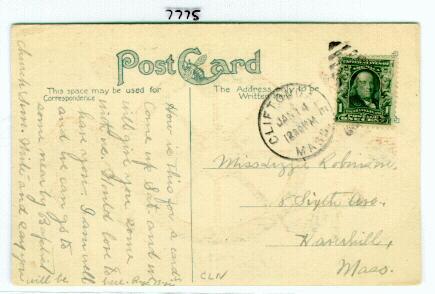 7775
Post Card
This space may be used for
Correspondence
The Address only to be
Written
CLIFTON
JAN 14
MASS
1
How is this for a card.
Come up Sat. and we
will give you some
Would love to
have you. I am well
and we can go to
some nearby Baptist
church Sun. Write and say you
will be
here.
Miss Lizzie Robinson,
8 Sixth Ave.
Haverhill,
Mass.
CLN